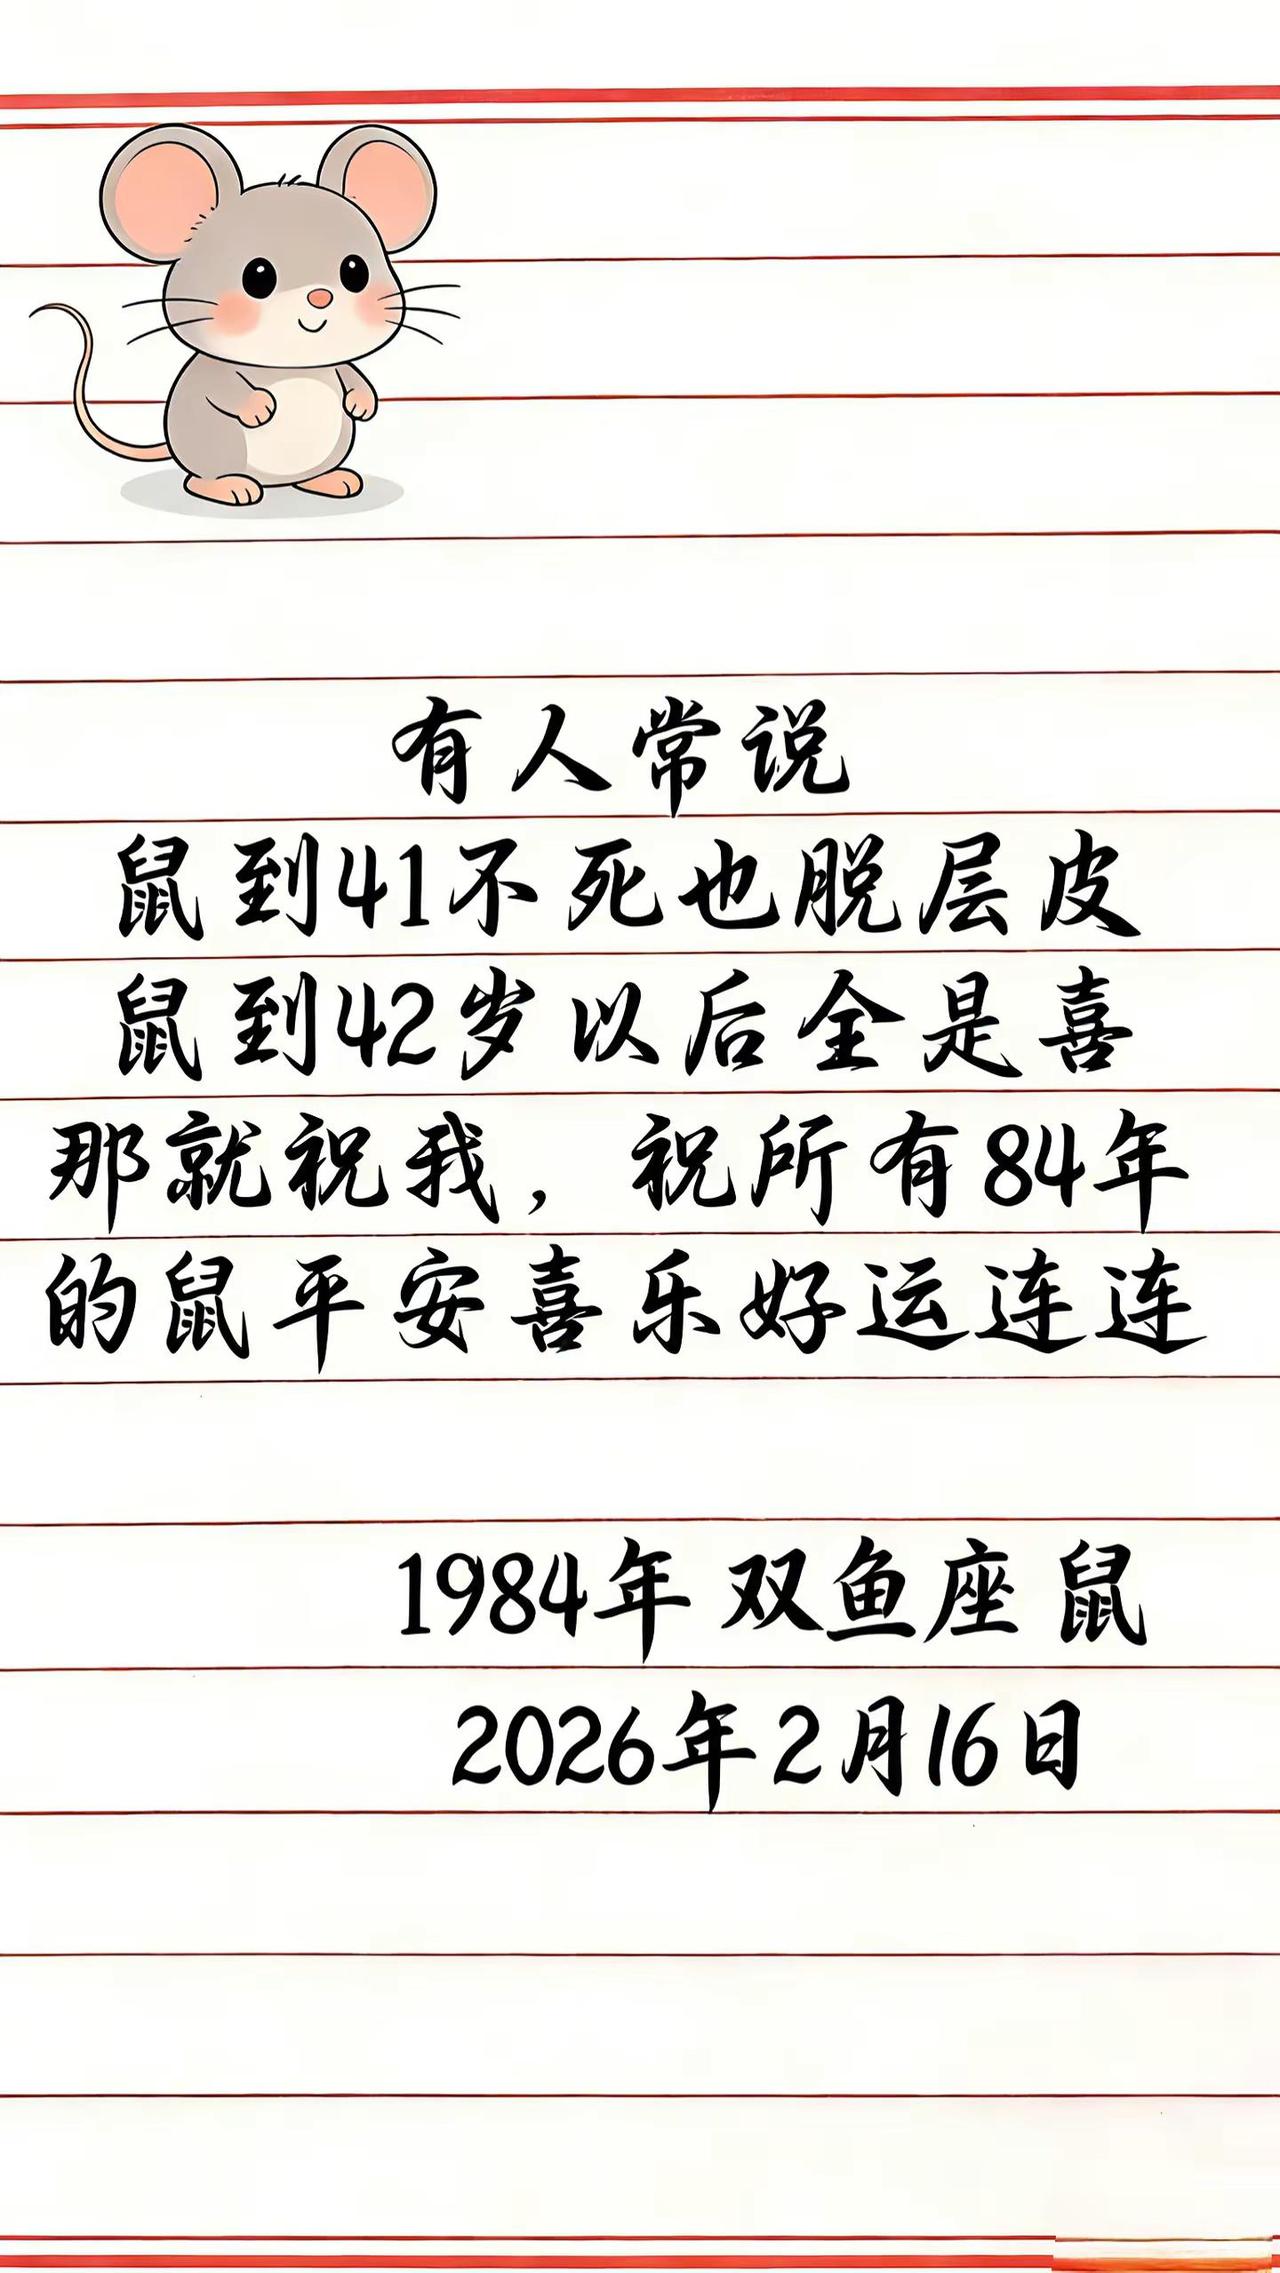 有人常说
鼠到41不死也脱层皮
鼠到42岁以后全是喜
那就祝我，祝所有84年
的鼠平安喜乐好运连连
1984年 双鱼座 鼠
2026年2月16日